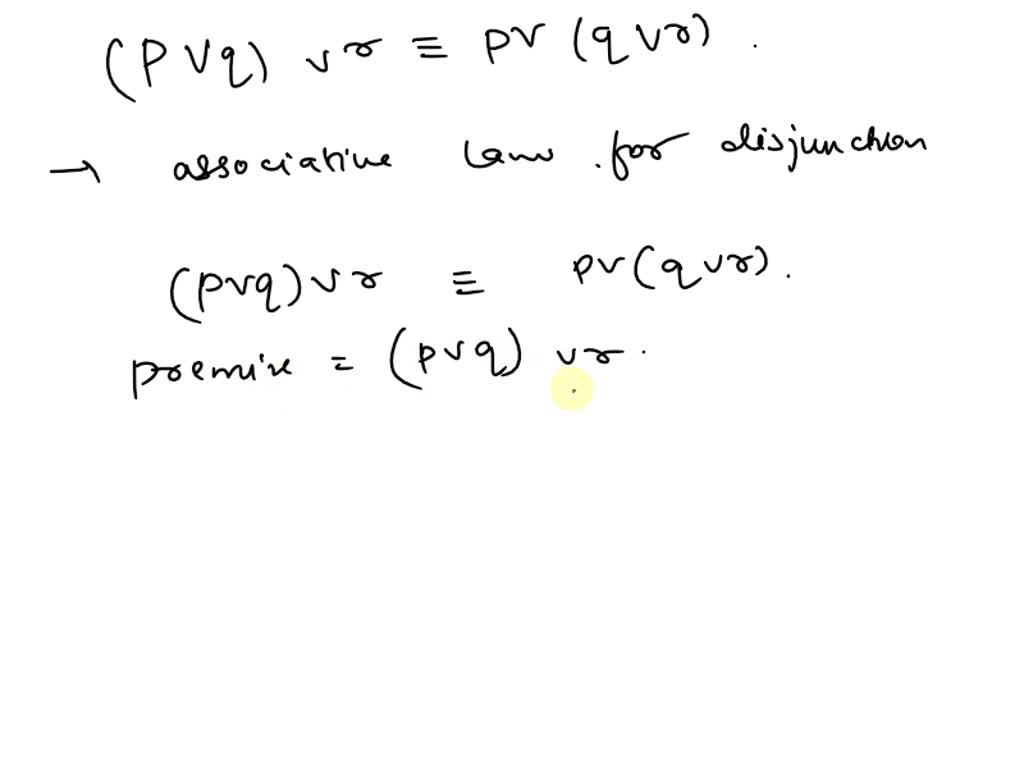 (p ∨ q) ∨ r ≡ p ∨ (q ∨ r).
→ associative law for disjunction
(p ∨ q) ∨ r ≡ p ∨ (q ∨ r).
premise = (p ∨ q) ∨ r.